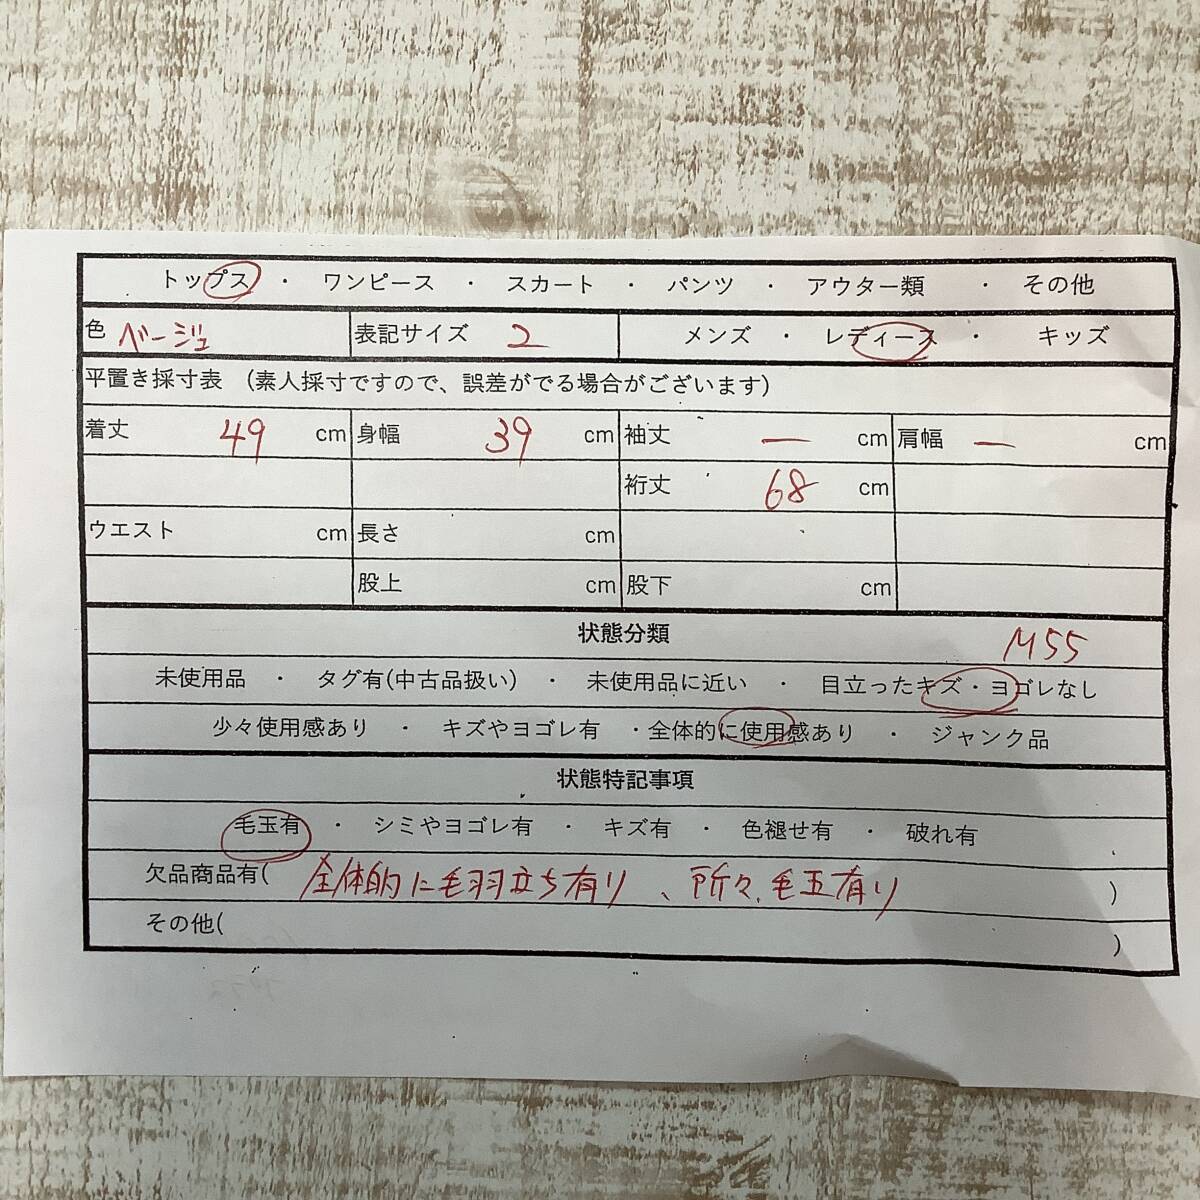 トップス ・ ワンピース ・ スカート ・ パンツ ・ アウター類 ・ その他
色 ベージュ 表記サイズ 2 メンズ ・ レディース ・ キッズ
平置き採寸表 (素人採寸ですので、誤差がでる場合がございます)
着丈 49 cm 身幅 39 cm 袖丈 ー cm 肩幅 ー cm
裄丈 68 cm
ウエスト cm 長さ cm
股上 cm 股下 cm
状態分類 M55
未使用品 ・ タグ有(中古品扱い) ・ 未使用品に近い ・ 目立ったキズ・ヨゴレなし
少々使用感あり ・ キズやヨゴレ有 ・全体的に使用感あり ・ ジャンク品
状態特記事項
毛玉有 ・ シミやヨゴレ有 ・ キズ有 ・ 色褪せ有 ・ 破れ有
欠品商品有( 全体的に毛羽立ち有り、所々毛玉有り )
その他( )